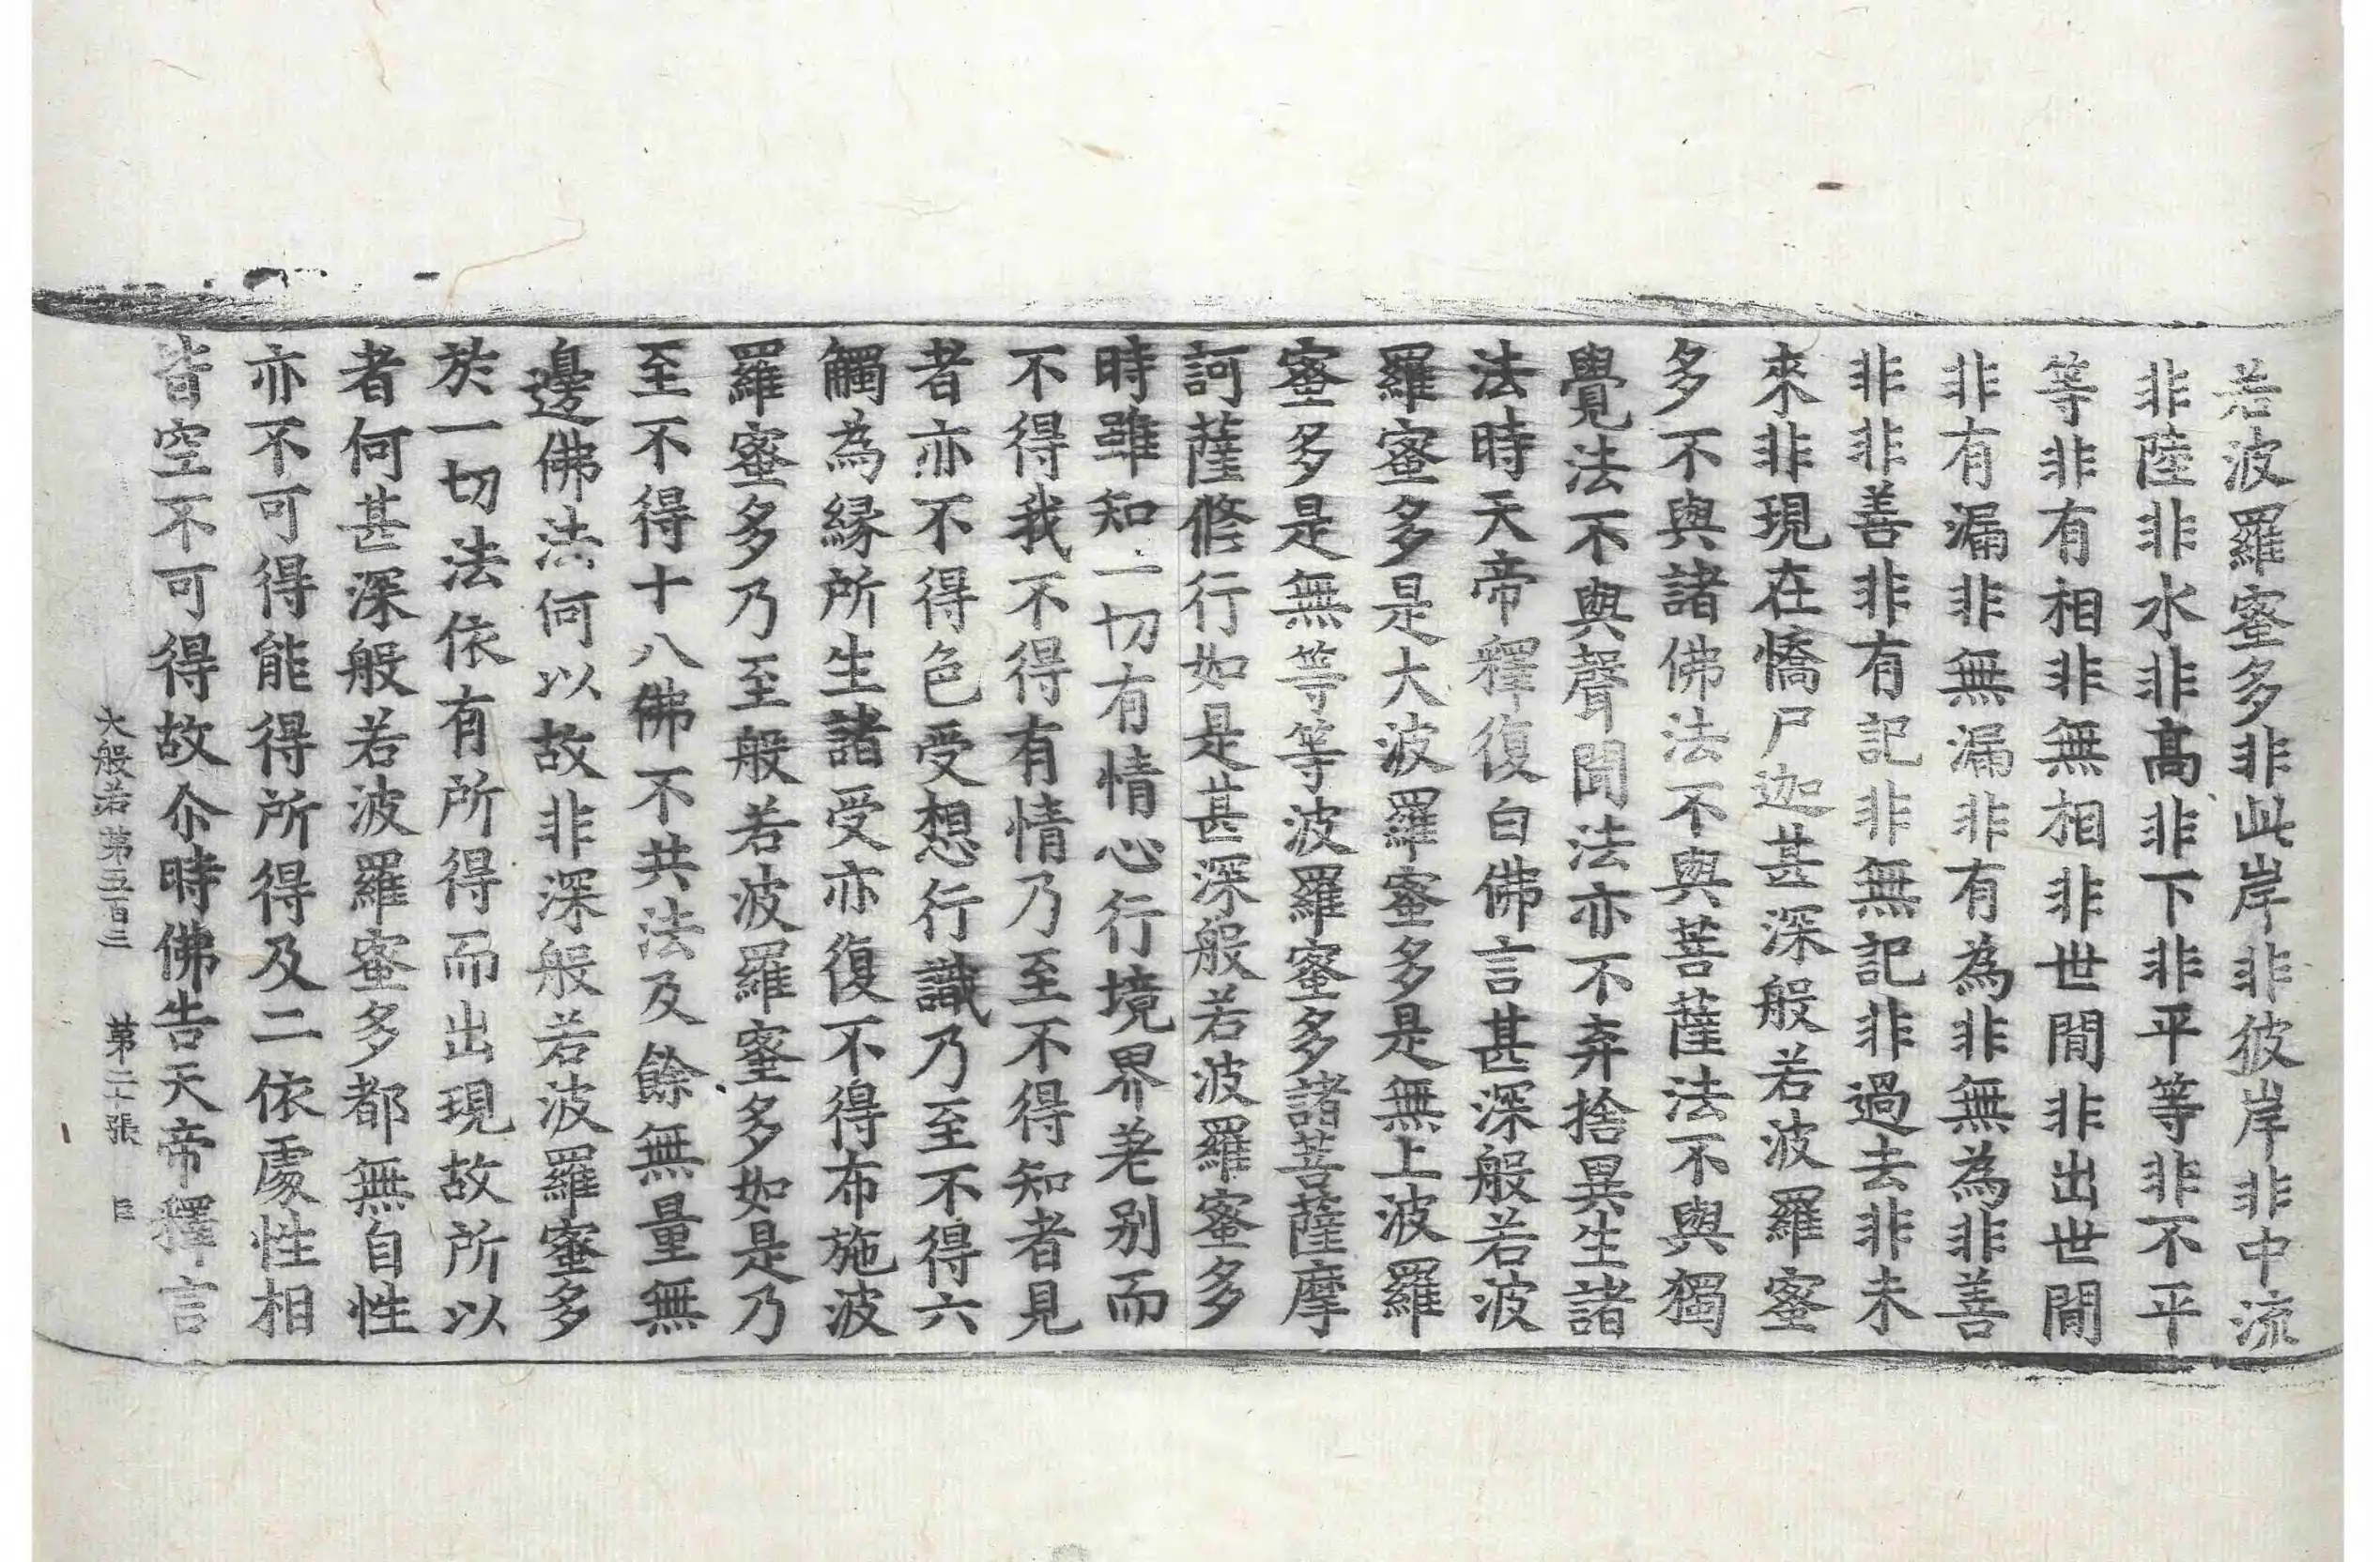 若波羅蜜多非此岸非彼岸非中流
非陸非水非高非下非平等非不平
等非有相非無相非世間非出世間
非有漏非無漏非有為非無為非善
非非善非有記非無記非過去非未
來非現在憍尸迦甚深般若波羅蜜
多不與諸佛法不與菩薩法不與獨
覺法不與聲聞法亦不弃捨異生諸
法時天帝釋復白佛言甚深般若波
羅蜜多是大波羅蜜多是無上波羅
蜜多是無等等波羅蜜多諸菩薩摩
訶薩修行如是甚深般若波羅蜜多
時雖知一切有情心行境界差別而
不得我不得有情乃至不得知者見
者亦不得色受想行識乃至不得六
觸為緣所生諸受亦復不得布施波
羅蜜多乃至般若波羅蜜多如是乃
至不得十八佛不共法及餘無量無
邊佛法何以故非深般若波羅蜜多
於一切法依有所得而出現故所以
者何甚深般若波羅蜜多都無自性
亦不可得能得所得及二依處性相
皆空不可得故尒時佛告天帝釋言
大般若第五百三 第二十張 臣